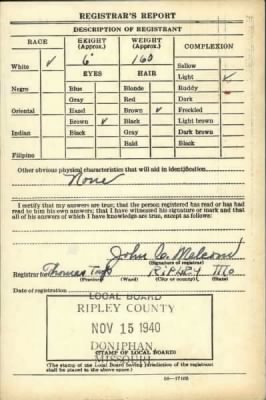 REGISTRAR'S REPORT
DESCRIPTION OF REGISTRANT
RACE HEIGHT (Approx.) WEIGHT (Approx.) COMPLEXION
White ✓ 6' 160 Sallow
EYES HAIR Light ✓
Negro Blue Blonde Ruddy
Gray Red Dark
Oriental Hazel Brown ✓ Freckled
Brown ✓ Black Light brown
Indian Black Gray Dark brown
Bald Black
Filipino
Other obvious physical characteristics that will aid in identification
None
I certify that my answers are true; that the person registered has read or has had
read to him his own answers; that I have witnessed his signature or mark and that
all of his answers of which I have knowledge are true, except as follows:
John C.
(Signature of registrar)
Registrar for Thomas RIPLEY Mo
(Precinct) (Ward) (City or county) (State)
Date of registration
LOCAL BOARD
RIPLEY COUNTY
NOV 15 1940
DONIPHAN,
MISSOURI
(STAMP OF LOCAL BOARD)
(The stamp of the Local Board having jurisdiction of the registrant
shall be placed in the above space.)